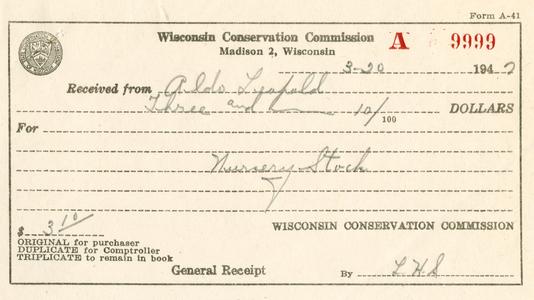 Form A-41
Wisconsin Conservation Commission A 9999
Madison 2, Wisconsin
3-20 1947
Received from Aldo Leopold
Three and 10/100 DOLLARS
For
Nursery Stock
$ 3 10
WISCONSIN CONSERVATION COMMISSION
ORIGINAL for purchaser
DUPLICATE for Comptroller
TRIPLICATE to remain in book
General Receipt By L.H.S